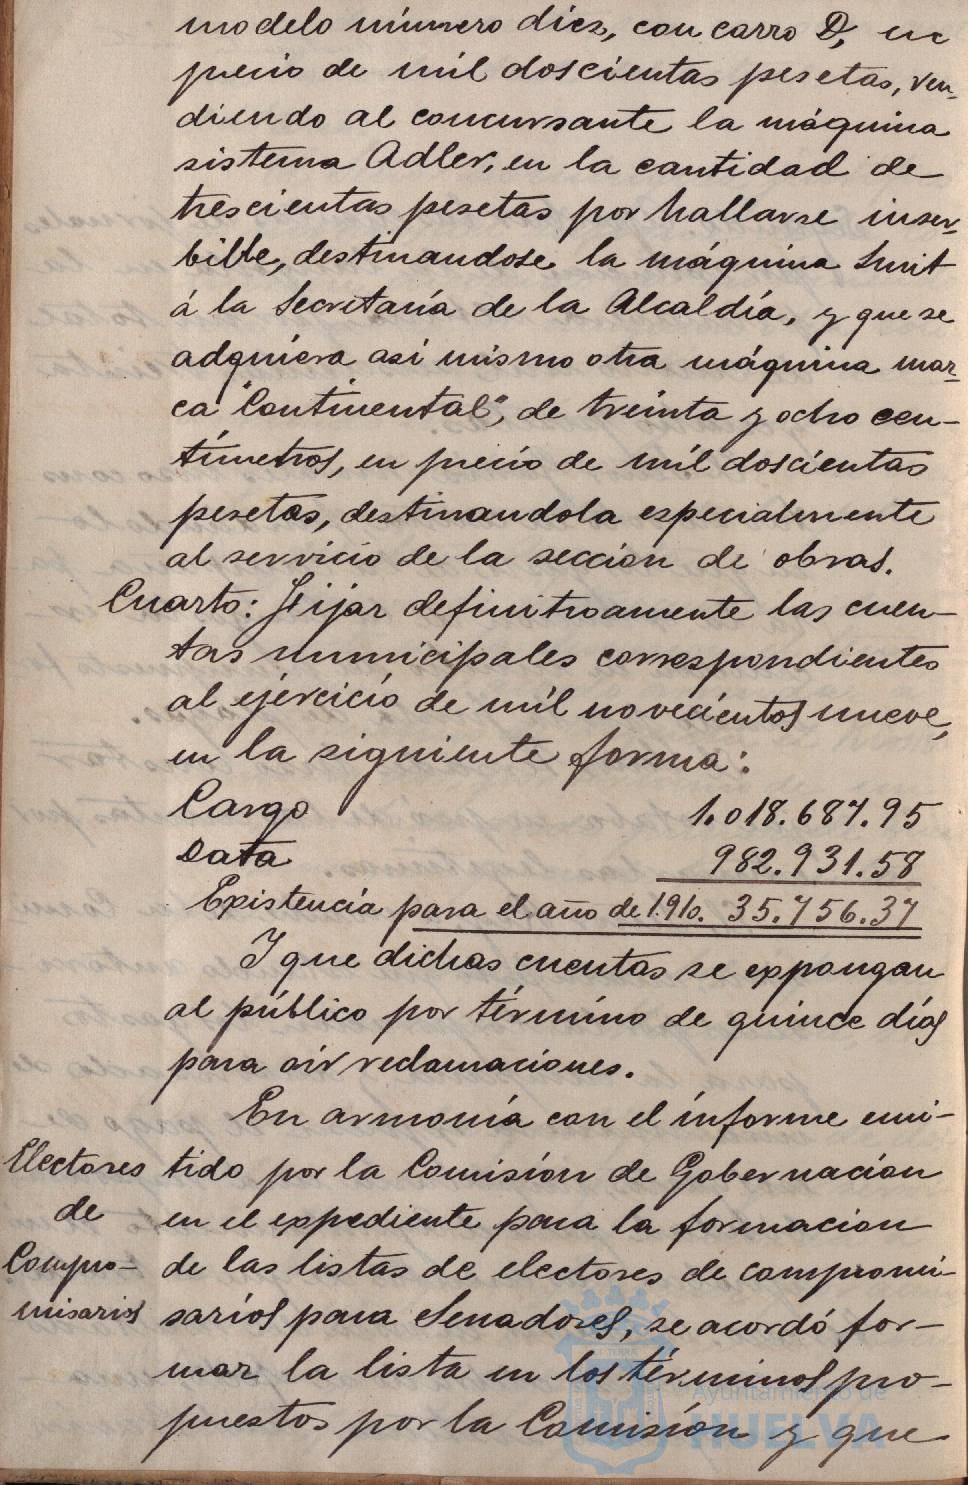 modelo número diez, con carro D, en
precio de mil doscientas pesetas, ven-
diendo al concursante la máquina
sistema Adler, en la cantidad de
trescientas pesetas por hallarse inser-
bible, destinandose la máquina Smit
á la Secretaría de la Alcaldía, y que se
adquiera así mismo otra máquina mar-
ca "Continental", de treinta y ocho cen-
tímetros, en precio de mil doscientas
pesetas, destinandola especialmente
al servicio de la seccion de obras.
Cuarto: Fijar definitivamente las cuen-
tas municipales correspondientes
al ejercicio de mil novecientos nueve,
en la siguiente forma:
Cargo 1.018.687.95
Data 982.931.58
Existencia para el año de 1910. 35.756.37
Y que dichas cuentas se expongan
al público por término de quince días
para oir reclamaciones.
En armonía con el informe emi-
Electores tido por la Comisión de Gobernación
de en el expediente para la formacion
Compro- de las listas de electores de compromi-
misarios sarios para Senadores, se acordó for-
mar la lista en los términos pro-
puestos por la Comisión y que
Ayuntamiento de
HUELVA